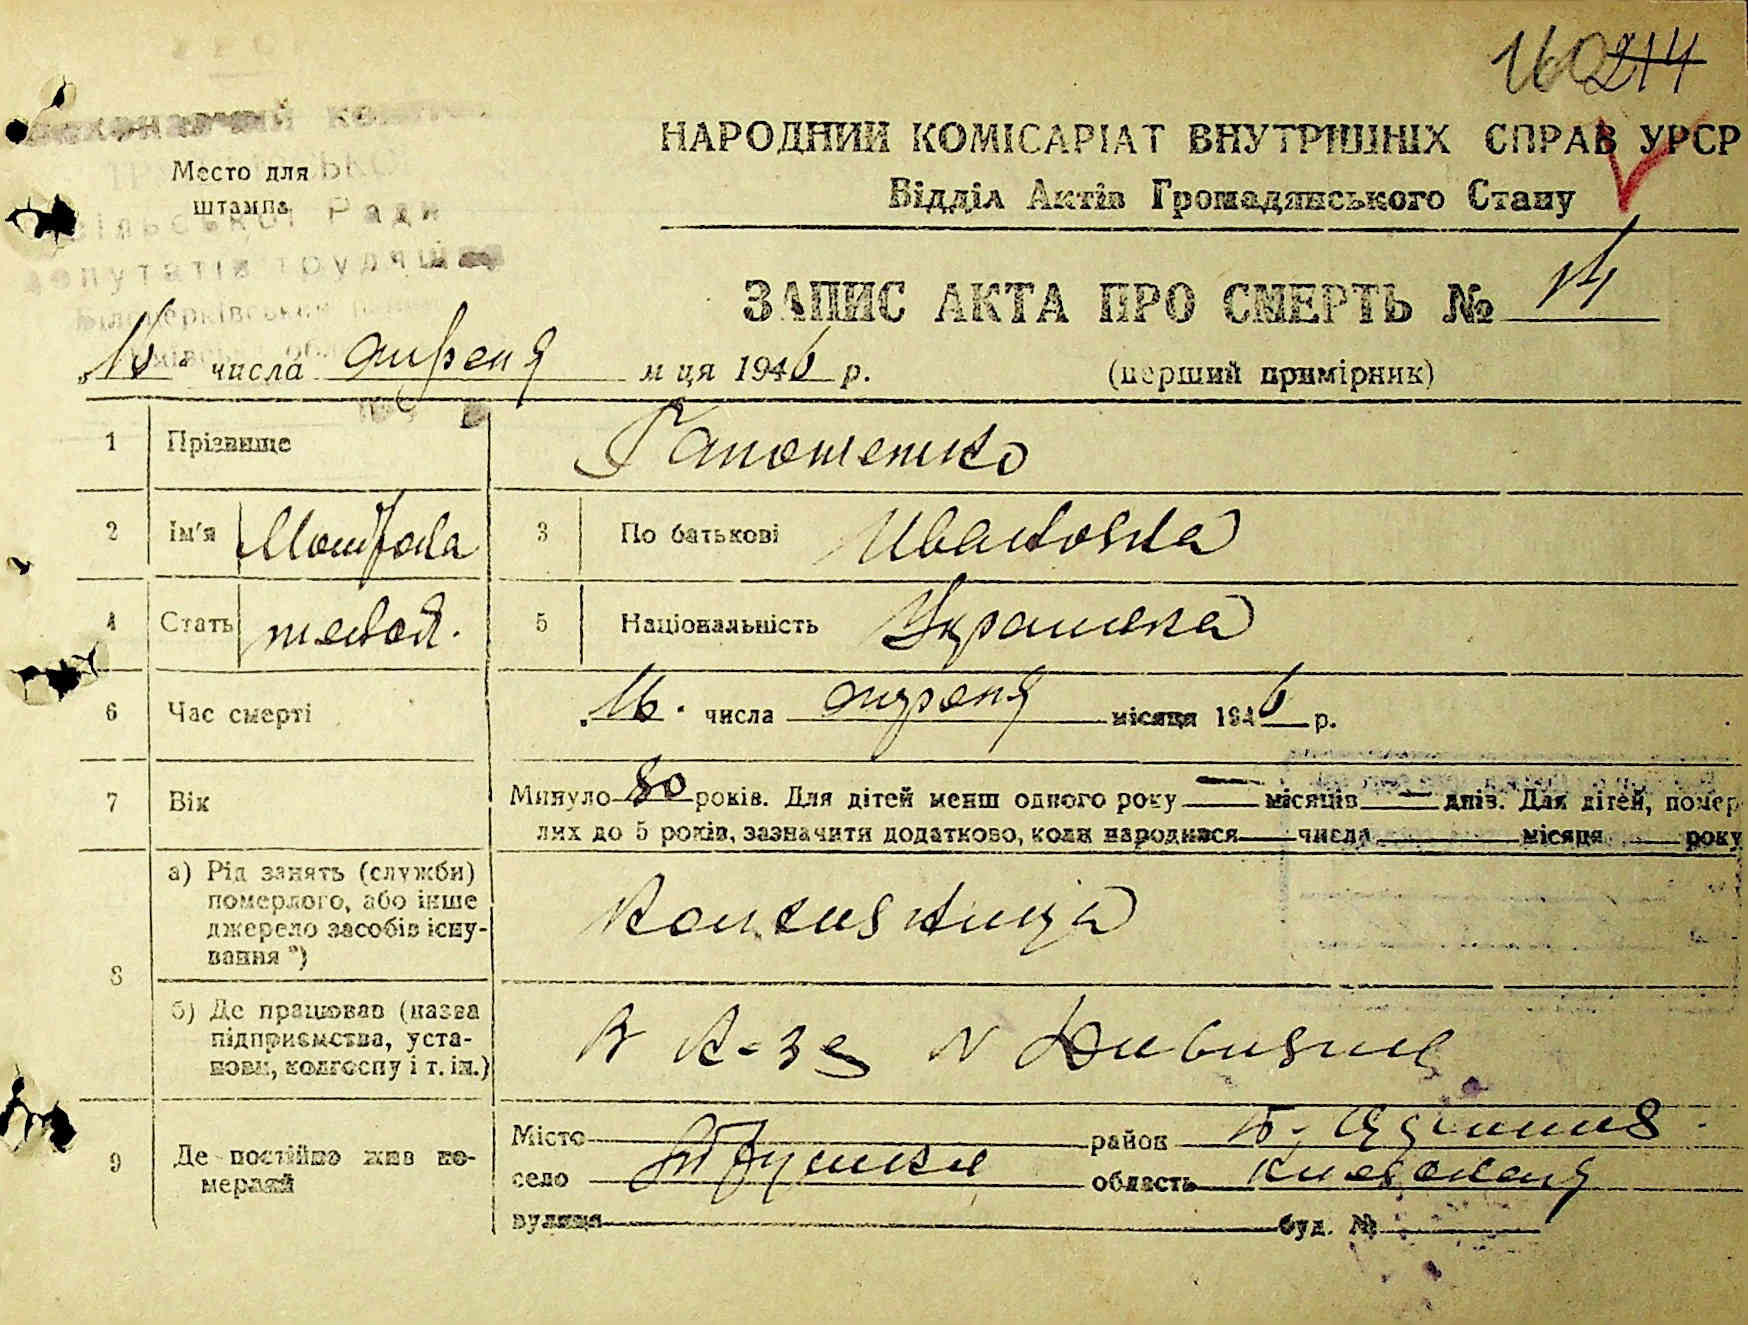 160 214
виконавчий коміт
Место для
штампа
сільської Ради
депутатів трудящих
Білоцерківського
НАРОДНИЙ КОМІСАРІАТ ВНУТРІШНІХ СПРАВ УРСР
Відділ Актів Громадянського Стану
ЗАПИС АКТА ПРО СМЕРТЬ № 14
„16" числа апреля м ця 1946 р. (перший примірник)
1 Прізвище Гапоненко
2 Ім'я 3 По батькові Ивановна
4 Стать женская. 5 Національність Украинка
6 Час смерті „16. числа апреля місяця 1946 р.
7 Вік Минуло 80 років. Для дітей менш одного року — місяців — днів. Для дітей, помер-
лих до 5 років, зазначити додатково, коли народився числа місяця року
8 а) Рід занять (служби)
померлого, або інше
джерело засобів існу-
вання *) Колхозница
б) Де працював (назва
підприємства, уста-
нови, колгоспу і т. ін.) В к-зе
9 Де постійно жив по-
мерлий
Місто район Б-Церковский
село Трушки область Киевская
вулиця буд. №